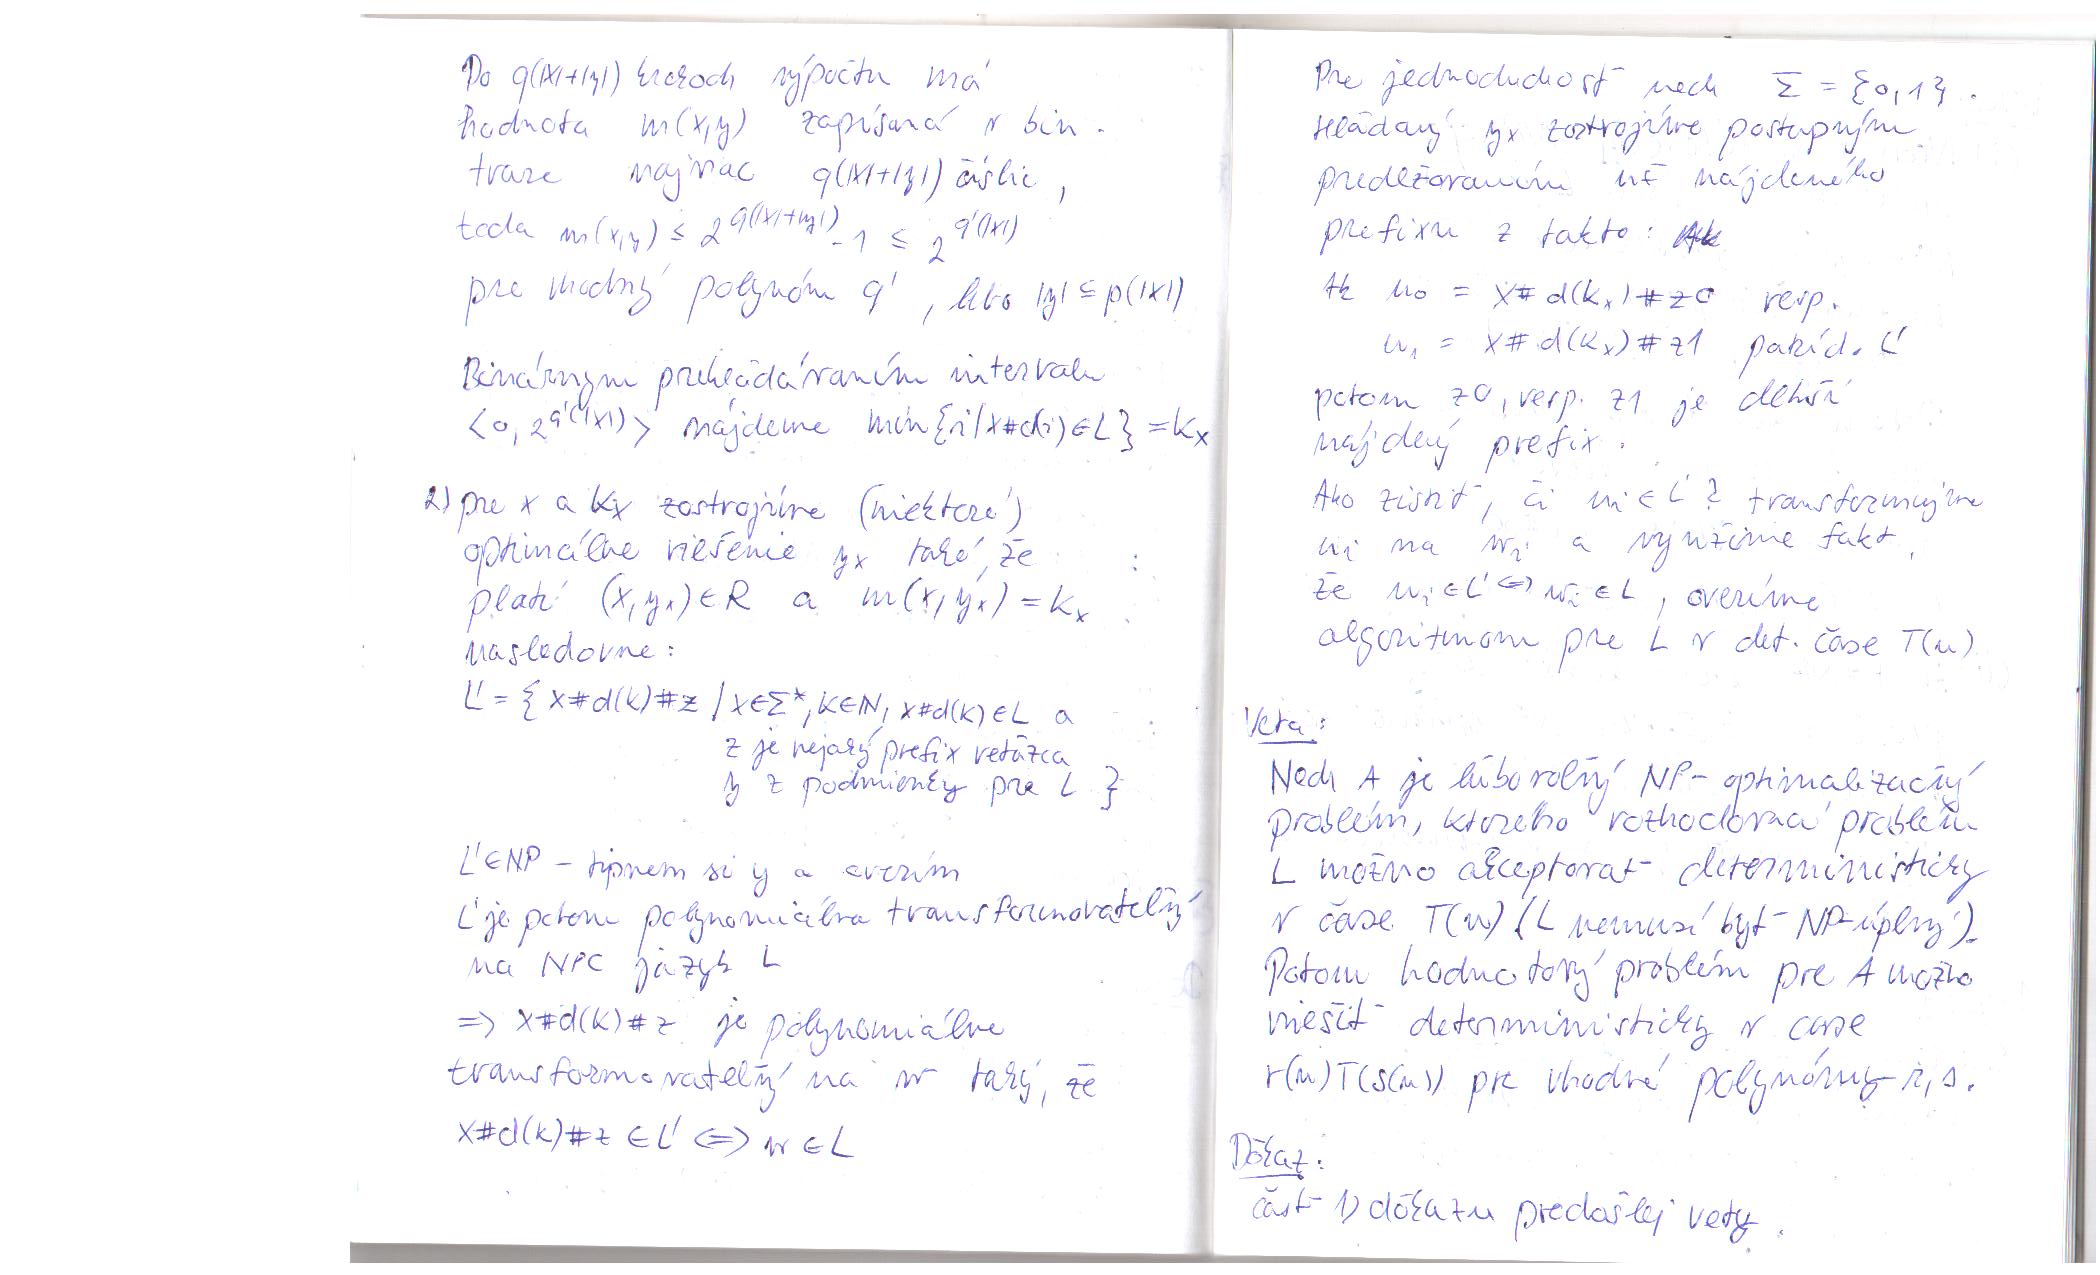 Po q(|x|+|y|) krokoch výpočtu má
hodnota m(x,y) zapísaná v bin.
tvare najviac q(|x|+|y|) číslic,
teda m(x,y) ≤ 2^q(|x|+|y|) - 1 ≤ 2^q'(|x|)
pre vhodný polynóm q', lebo |y| ≤ p(|x|)
Binárnym prehľadávaním intervalu
<0, 2^q'(|x|)> nájdeme min{i/x#d(i)∈L} = kx
2) pre x a kx zostrojíme (niektoré)
optimálne riešenie yx také, že
platí (x,yx)∈R a m(x,yx) = kx
nasledovne:
L' = { x#d(k)#z / x∈Σ*, k∈N, x#d(k)∈L a
z je nejaký prefix reťazca
y z podmienky pre L }
L'∈NP - tipnem si y a overím
L' je potom polynomiálne transformovateľný
na NPC jazyk L
=> x#d(k)#z je polynomiálne
transformovateľný na w taký, že
x#d(k)#z ∈ L' <=> w ∈ L
Pre jednoduchosť nech Σ = {0,1}.
Hľadaný yx zostrojíme postupným
predlžovaním už nájdeného
prefixu z takto:
Ak u0 = x#d(kx)#z0 resp.
u1 = x#d(kx)#z1 patrí d. L'
potom z0, resp. z1 je dlhší
nájdený prefix.
Ako zistiť, či ui∈L'? transformujme
ui na wi a využijme fakt,
že ui∈L' <=> wi∈L, overíme
algoritmom pre L v det. čase T(n)
Veta:
Nech A je ľubovoľný NP-optimalizačný
problém, ktorého rozhodovací problém
L možno akceptovať deterministicky
v čase T(n) (L nemusí byť NP-úplný).
Potom hodnotový problém pre A možno
riešiť deterministicky v čase
r(n)T(s(n)) pre vhodné polynómy r, s.
Dôkaz:
časť 1) dôkazu predošlej vety.